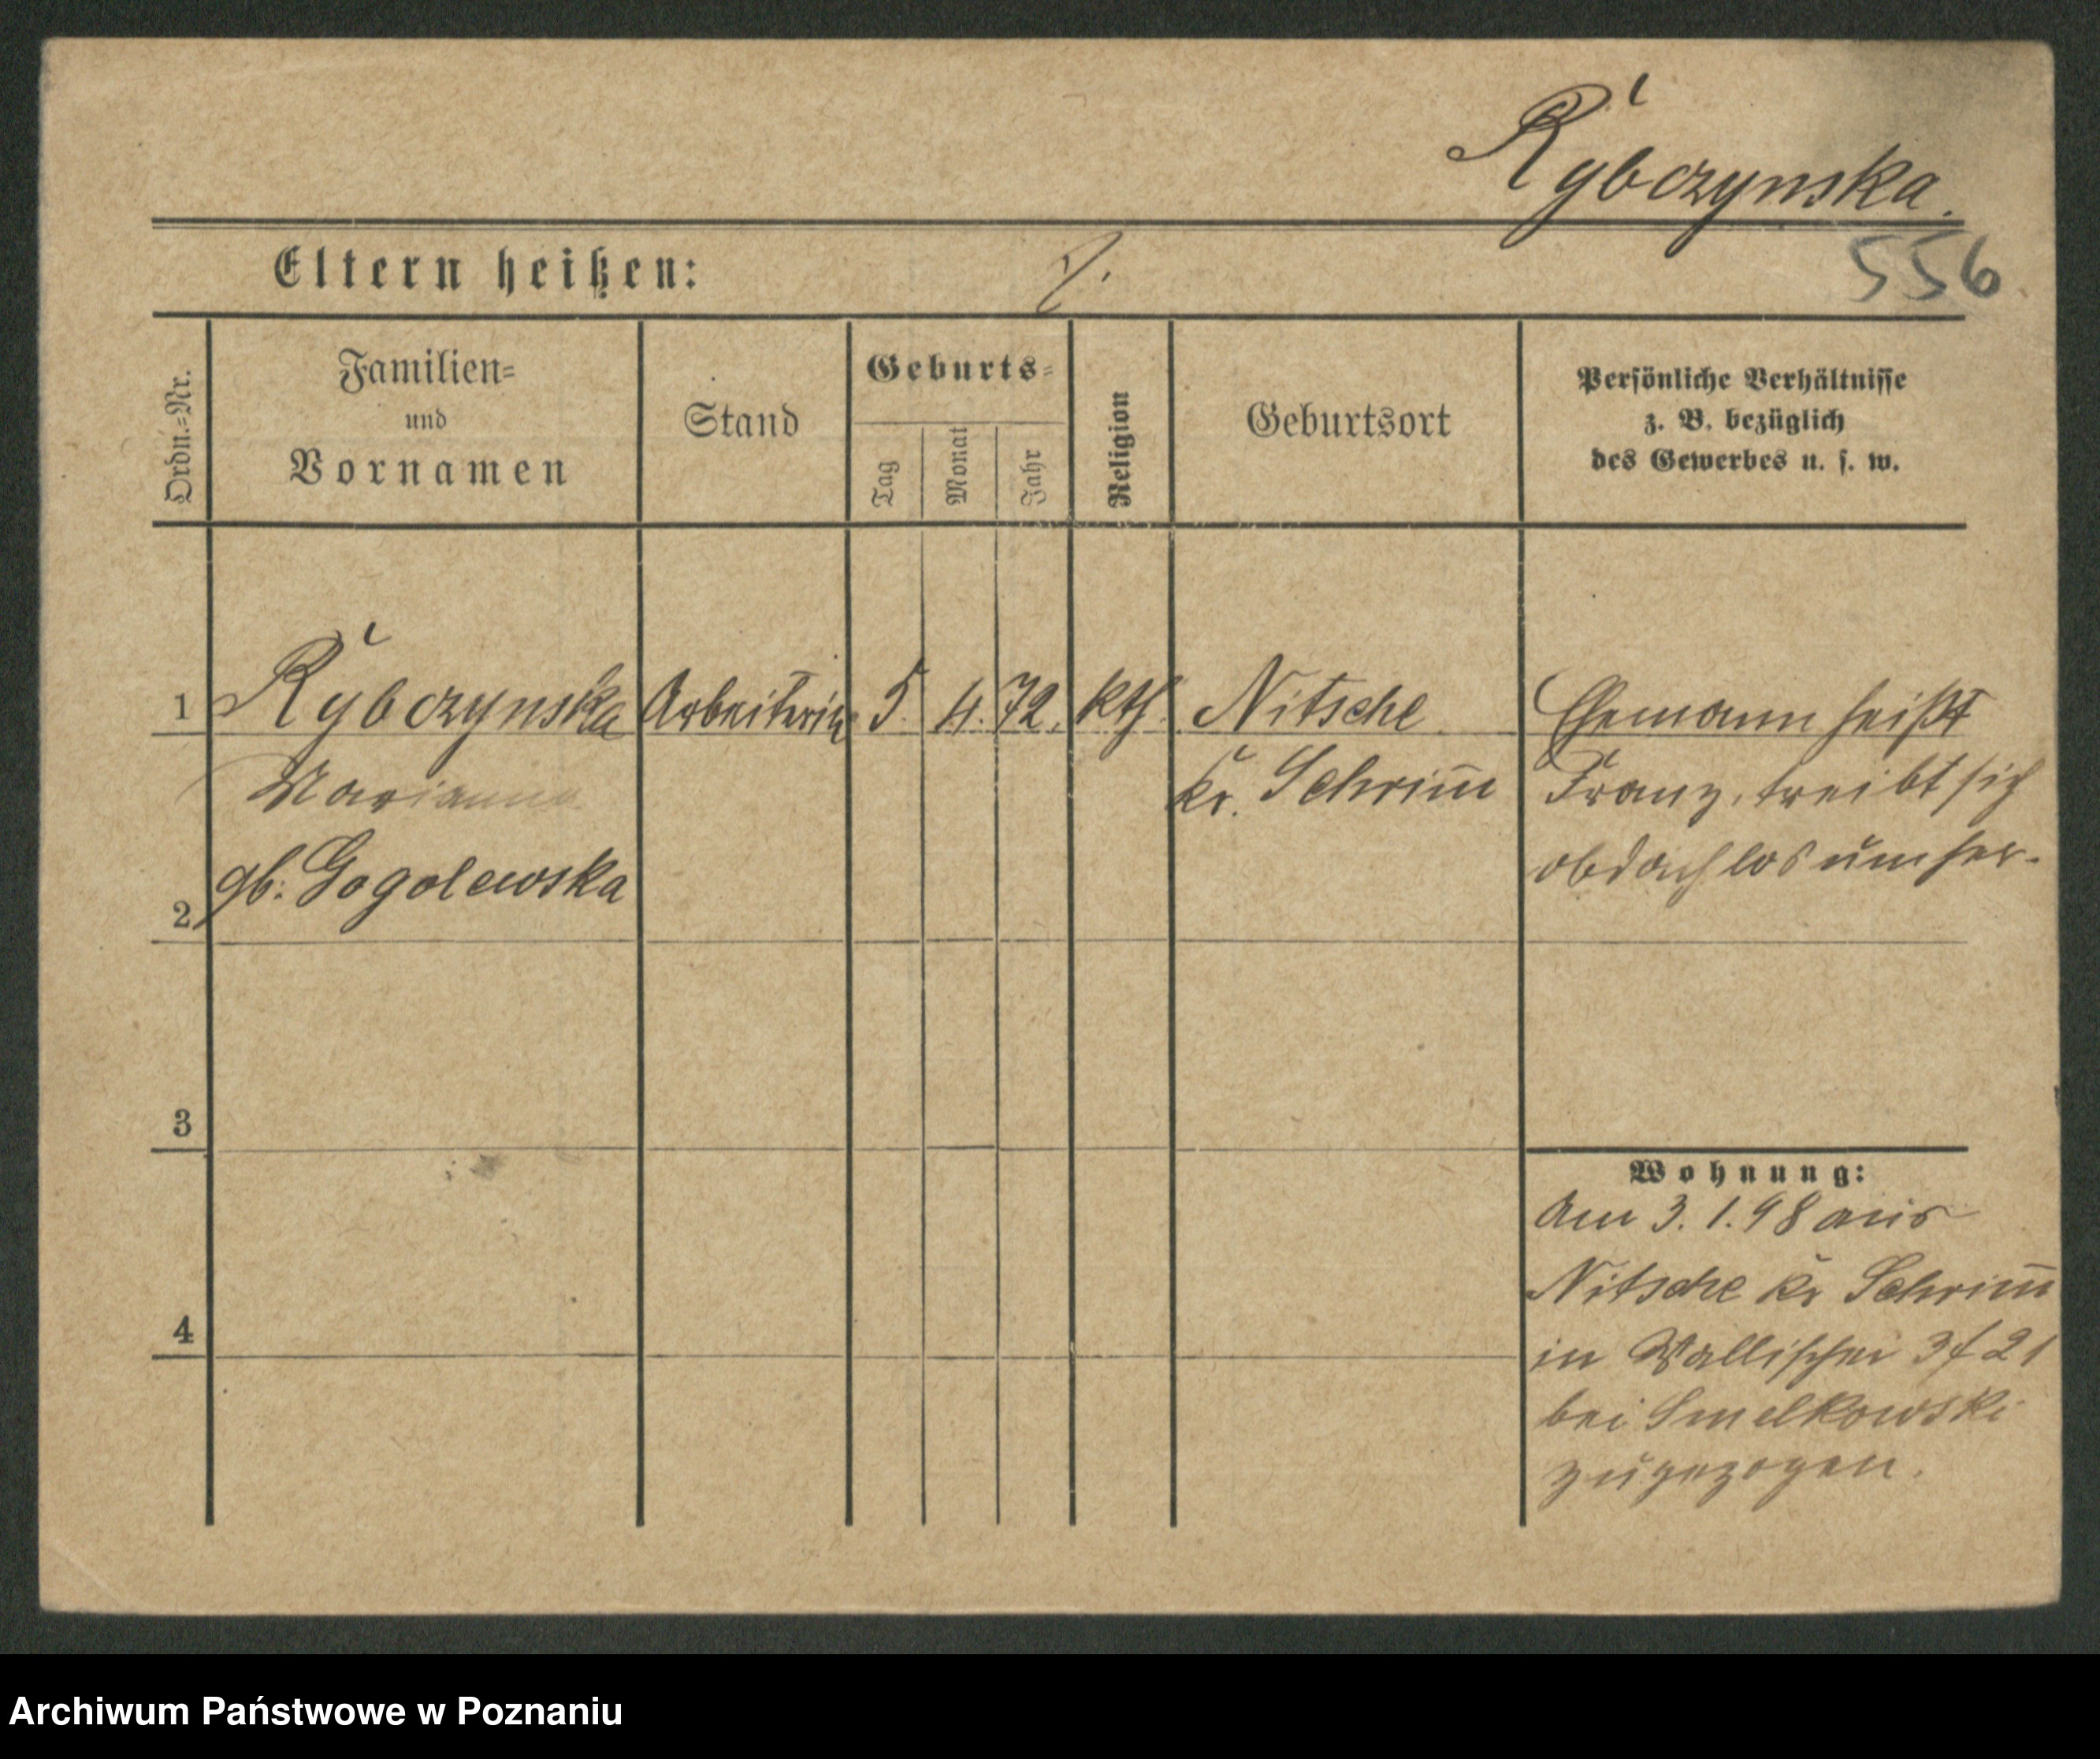 Rybczynska.
Eltern heißen: ?.
556
Ordn.=Nr.
Familien=
und
Vornamen
Stand
Geburts=
Tag
Monat
Jahr
Religion
Geburtsort
Persönliche Verhältnisse
z. B. bezüglich
des Gewerbes u. s. w.
1 Rybczynska Arbeiterin 5. 4. 72. kth. Nitsche Ehemann heißt
Marianna Kr. Schrim̅ Franz, treibt sich
gb. Gogolewska obdachlos umher.
2
3
Wohnung:
Am 3. 1. 98 aus
4 Nitsche Kr Schrim̅
in Wallischei 21
bei Smelkowski
zugezogen.
Archiwum Państwowe w Poznaniu